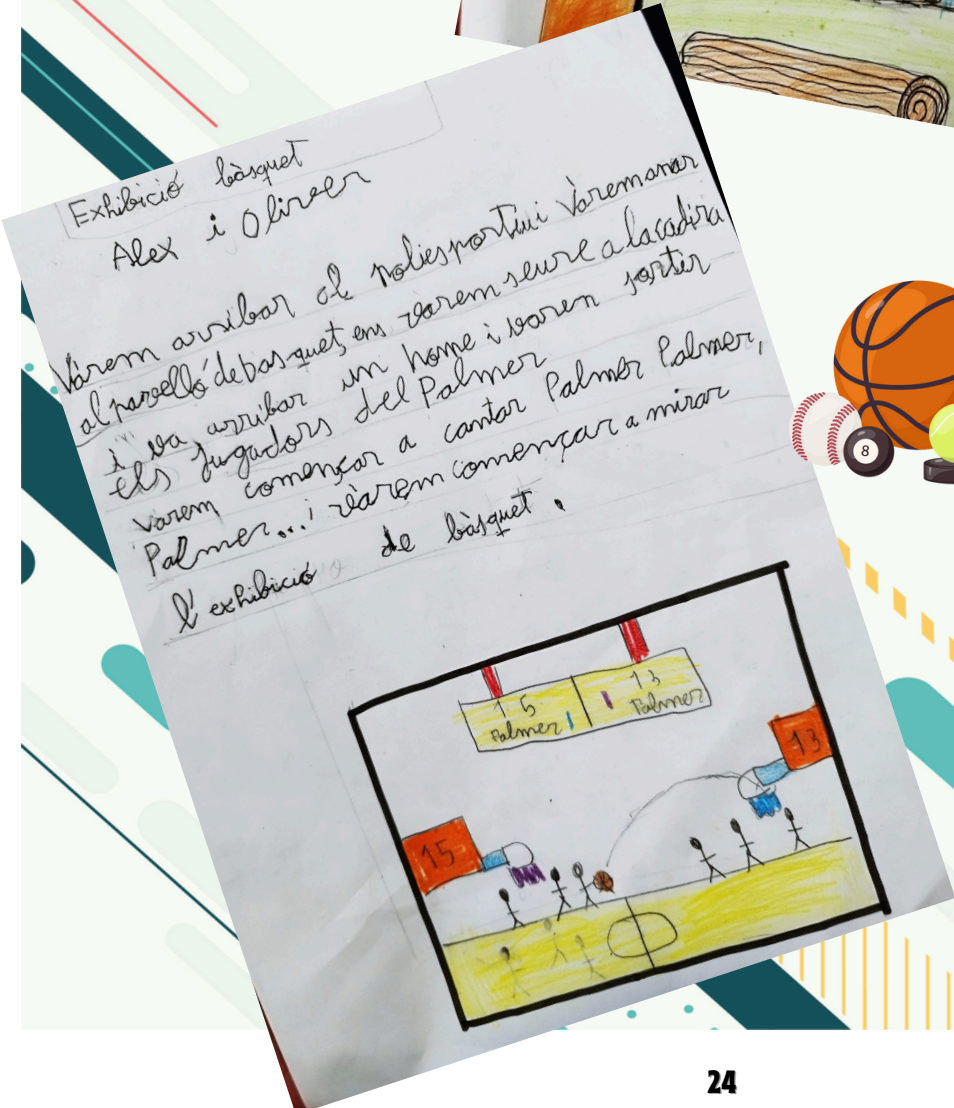 Exhibició bàsquet
Alex i Oliver
Vàrem arribar al poliesportiu i vàrem anar
al pavelló de basquet, ens vàrem seure a la cadira
i va arribar un home i varen sortir
els jugadors del Palmer
varem començar a cantar Palmer Palmer,
Palmer... i vàrem començar a mirar
l'exhibició de bàsquet.
15 13
Palmer Palmer
13
15
8
24